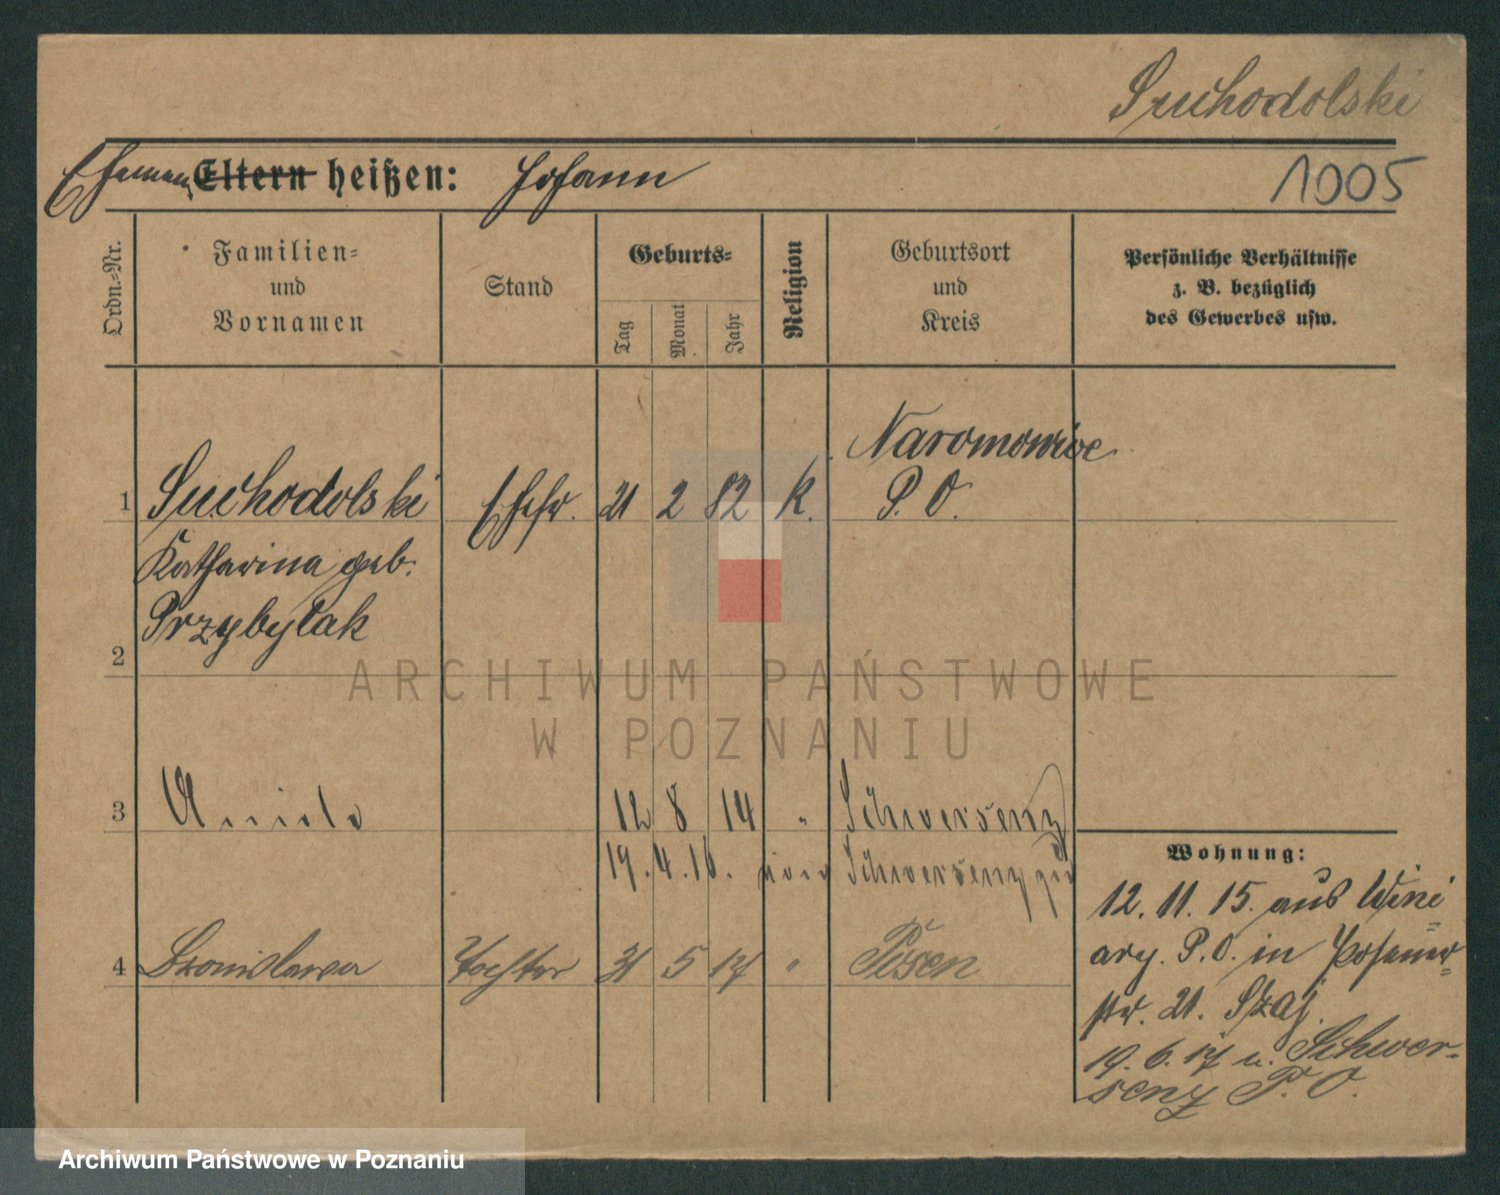 Suchodolski
Ehemann Eltern heißen: Johann
1005
Ordn.=Nr.
Familien=
und
Vornamen
Stand
Geburts=
Tag
Monat
Jahr
Religion
Geburtsort
und
Kreis
Persönliche Verhältnisse
z. B. bezüglich
des Gewerbes usw.
Naromowice
1 Suchodolski Ehefr. 21 2 82 K. P. O.
Katharina geb.
Przybylak
2
ARCHIWUM PAŃSTWOWE
W POZNANIU
3 Aniela 12 8 14 " Schwersenz
19. 4. 16. von Schwersenz zu
4 Bronislawa Tochter 31 5 17 " Posen
Wohnung:
12. 11. 15. aus Wini=
ary. P. O. in Posener=
str. 21. Szaj.
19. 6. 17 n. Schwer-
senz P. O.
Archiwum Państwowe w Poznaniu